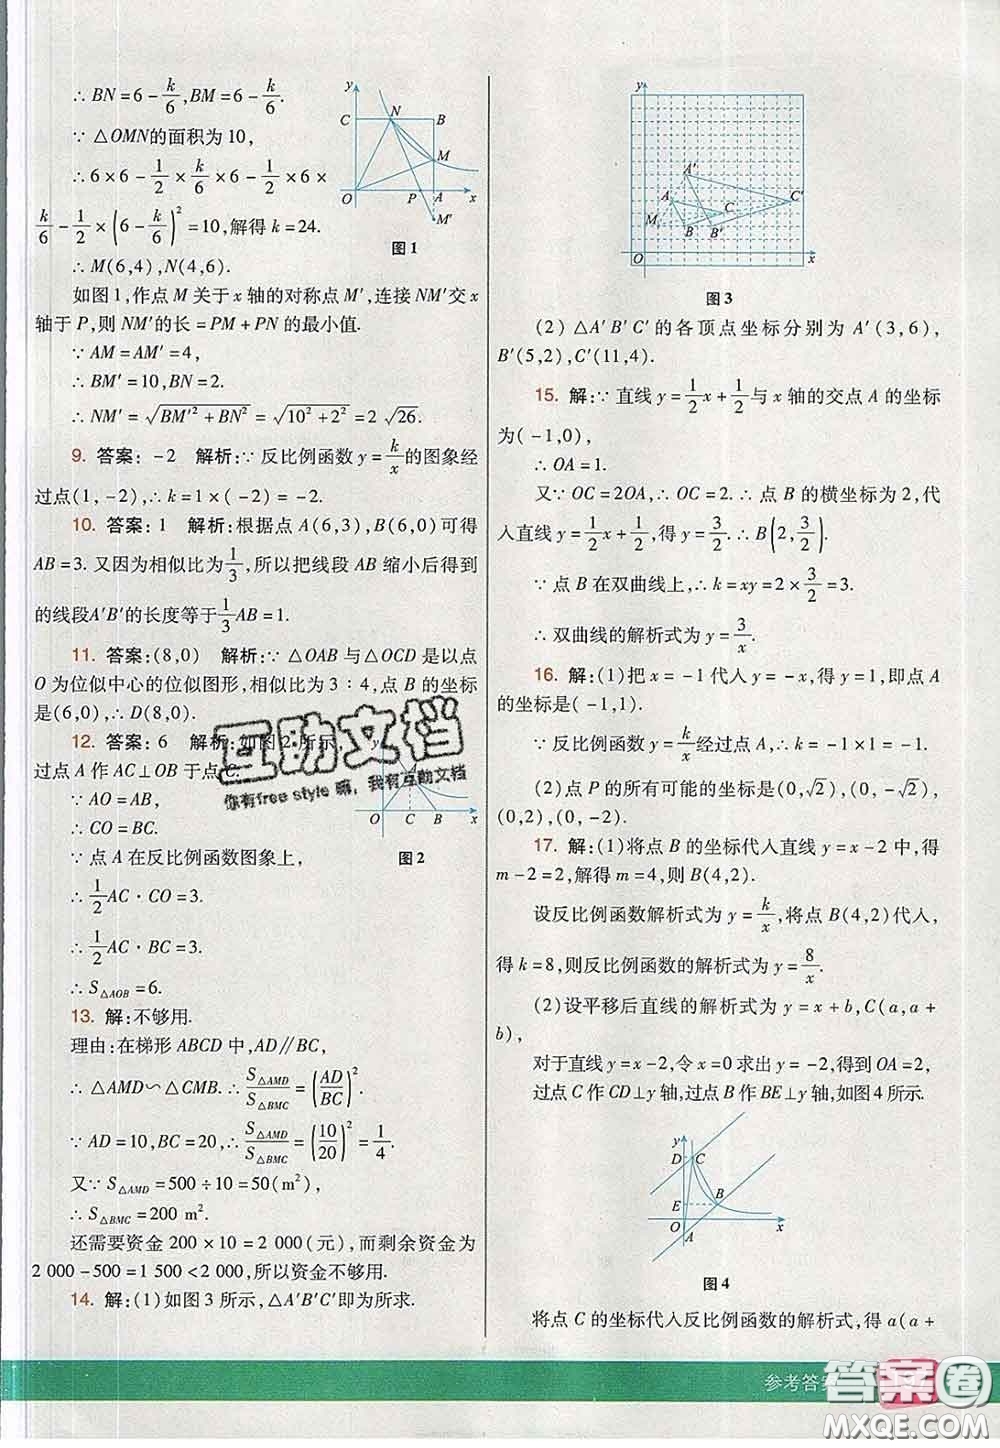 ∴ BN=6-k/6,BM=6-k/6.
∵ △OMN的面积为10,
∴ 6×6-1/2×k/6×6-1/2×6×
k/6-1/2×(6-k/6)²=10,解得k=24.
∴ M(6,4),N(4,6).
y
C
N
B
M
O
P
A
x
M′
图1
如图1,作点M关于x轴的对称点M′,连接NM′交x
轴于P,则NM′的长=PM+PN的最小值.
∵ AM=AM′=4,
∴ BM′=10,BN=2.
∴ NM′=√(BM′²+BN²)=√(10²+2²)=2√26.
9. 答案:-2 解析:∵反比例函数y=k/x的图象经
过点(1,-2),∴k=1×(-2)=-2.
10. 答案:1 解析:根据点A(6,3),B(6,0)可得
AB=3.又因为相似比为1/3,所以把线段AB缩小后得到
的线段A′B′的长度等于1/3AB=1.
11. 答案:(8,0) 解析:∵△OAB与△OCD是以点
O为位似中心的位似图形,相似比为3:4,点B的坐标
是(6,0),∴D(8,0).
12. 答案:6 解析:如图2所示,
过点A作AC⊥OB于点C.
∵ AO=AB,
∴ CO=BC.
y
O
C
B
x
图2
∵ 点A在反比例函数图象上,
∴ 1/2AC·CO=3.
∴ 1/2AC·BC=3.
∴ S△AOB=6.
13. 解:不够用.
理由:在梯形ABCD中,AD∥BC,
∴ △AMD∽△CMB.∴ S△AMD/S△BMC=(AD/BC)².
∵ AD=10,BC=20,∴ S△AMD/S△BMC=(10/20)²=1/4.
又∵ S△AMD=500÷10=50(m²),
∴ S△BMC=200 m².
还需要资金200×10=2 000(元),而剩余资金为
2 000-500=1 500<2 000,所以资金不够用.
14. 解:(1)如图3所示,△A′B′C′即为所求.
y
A′
A
C′
C
M
B
B′
O
x
图3
(2)△A′B′C′的各顶点坐标分别为A′(3,6),
B′(5,2),C′(11,4).
15. 解:∵直线y=1/2x+1/2与x轴的交点A的坐标
为(-1,0),
∴ OA=1.
又∵OC=2OA,∴OC=2.∴点B的横坐标为2,代
入直线y=1/2x+1/2,得y=3/2.∴B(2,3/2).
∵ 点B在双曲线上,∴k=xy=2×3/2=3.
∴ 双曲线的解析式为y=3/x.
16. 解:(1)把x=-1代入y=x²,得y=1,即点A
的坐标为(-1,1).
∵ 反比例函数y=k/x经过点A,∴k=-1×1=-1.
(2)点P的所有可能的坐标是(0,√2),(0,-√2),
(0,2),(0,-2).
17. 解:(1)将点B的坐标代入直线y=x-2中,得
m-2=2,解得m=4,则B(4,2).
设反比例函数解析式为y=k/x,将点B(4,2)代入,
得k=8,则反比例函数的解析式为y=8/x.
(2)设平移后直线的解析式为y=x+b,C(a,a+
b),
对于直线y=x-2,令x=0求出y=-2,得到OA=2,
过点C作CD⊥y轴,过点B作BE⊥y轴,如图4所示.
y
D
C
E
B
O
x
A
图4
将点C的坐标代入反比例函数的解析式,得a(a+
互助文档
你有free style 嘛,我有互助文档
参考答案
答案圈
MXQE.COM